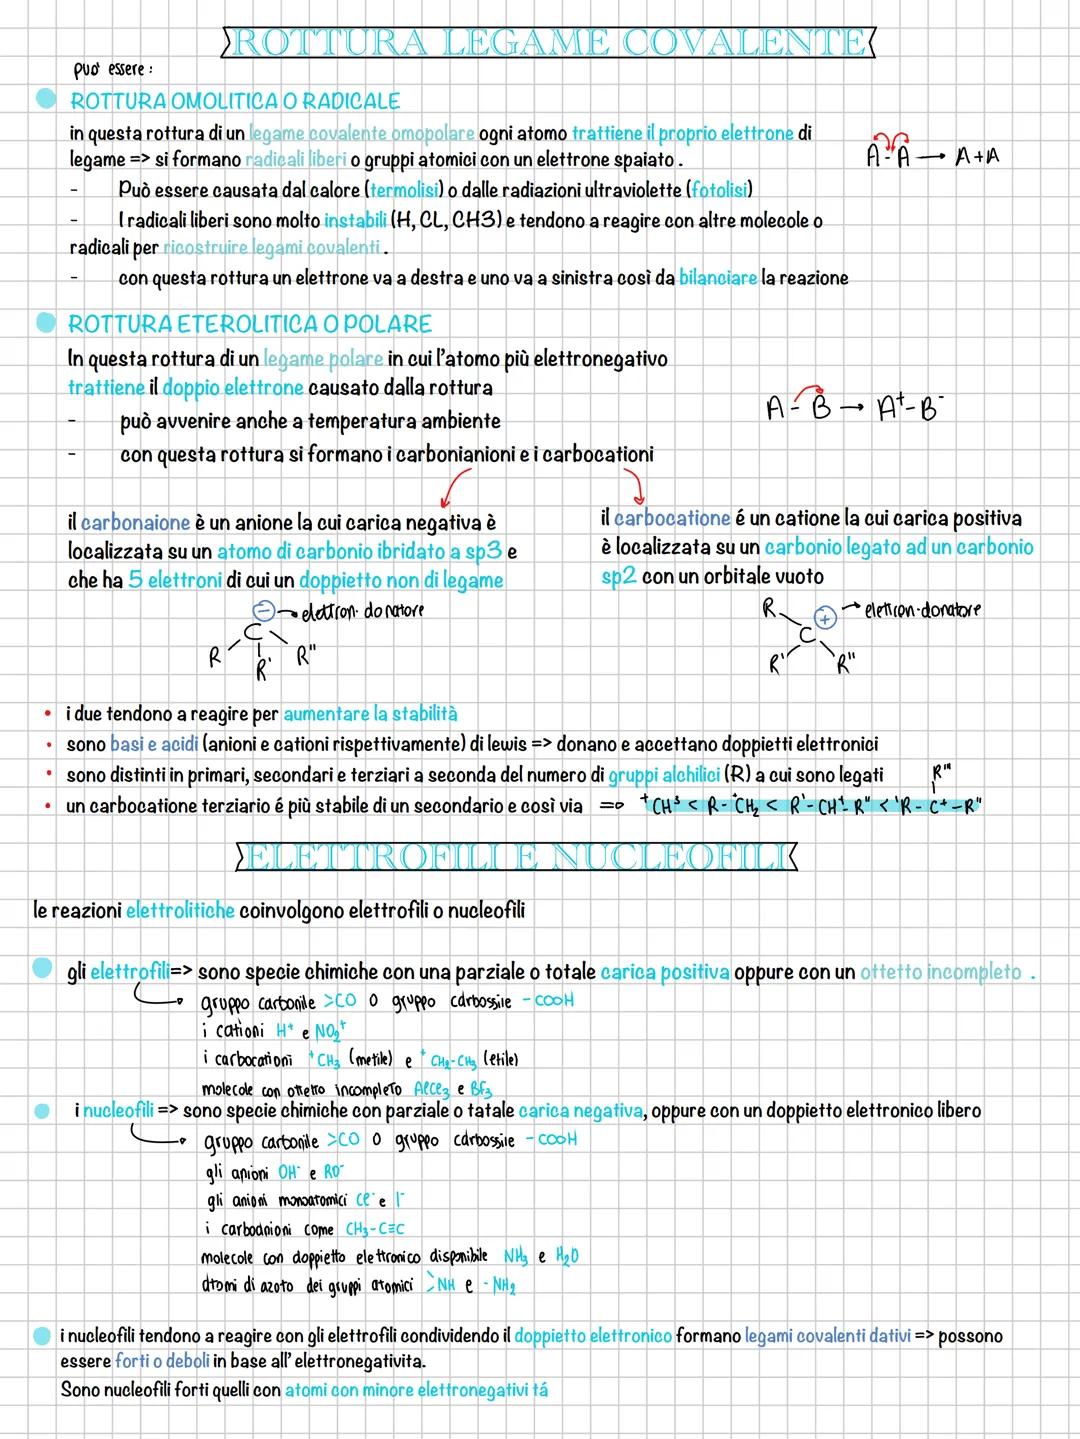 ROTTURA LEGAME COVALENTE
può essere :
ROTTURA OMOLITICA O RADICALE
in questa rottura di un legame covalente omopolare ogni atomo trattiene il proprio elettrone di
legame => si formano radicali liberi o gruppi atomici con un elettrone spaiato .
A-A → A+A
- Può essere causata dal calore (termolisi) o dalle radiazioni ultraviolette (fotolisi)
- I radicali liberi sono molto instabili (H, CL, CH3) e tendono a reagire con altre molecole o
radicali per ricostruire legami covalenti .
- con questa rottura un elettrone va a destra e uno va a sinistra così da bilanciare la reazione
ROTTURA ETEROLITICA O POLARE
In questa rottura di un legame polare in cui l'atomo più elettronegativo
trattiene il doppio elettrone causato dalla rottura
A-B → A⁺-B⁻
- può avvenire anche a temperatura ambiente
- con questa rottura si formano i carbonianioni e i carbocationi
il carbonaione è un anione la cui carica negativa è
localizzata su un atomo di carbonio ibridato a sp3 e
che ha 5 elettroni di cui un doppietto non di legame
⊖ → elettron-donatore
C
R R' R"
il carbocatione é un catione la cui carica positiva
è localizzata su un carbonio legato ad un carbonio
sp2 con un orbitale vuoto
R ⊕ → elettron-donatore
C
R' R"
• i due tendono a reagire per aumentare la stabilità
• sono basi e acidi (anioni e cationi rispettivamente) di lewis => donano e accettano doppietti elettronici
• sono distinti in primari, secondari e terziari a seconda del numero di gruppi alchilici (R) a cui sono legati
R"'
• un carbocatione terziario é più stabile di un secondario e così via => ⁺CH³ < R-⁺CH₂ < R'-CH⁺-R" < 'R-C⁺-R"
ELETTROFILI E NUCLEOFILI
le reazioni elettrolitiche coinvolgono elettrofili o nucleofili
gli elettrofili=> sono specie chimiche con una parziale o totale carica positiva oppure con un ottetto incompleto .
gruppo carbonile >CO O gruppo carbossile -COOH
i cationi H⁺ e NO₂⁺
i carbocationi ⁺CH₃ (metile) e ⁺CH₂-CH₃ (etile)
molecole con ottetto incompleto AlCl₃ e BF₃
i nucleofili => sono specie chimiche con parziale o tatale carica negativa, oppure con un doppietto elettronico libero
gruppo carbonile >CO O gruppo carbossile -COOH
gli anioni OH⁻ e RO⁻
gli anioni monoatomici Cl⁻ e I⁻
i carboanioni come CH₃-C≡C
molecole con doppietto elettronico disponibile NH₃ e H₂O
atomi di azoto dei gruppi atomici >NH e -NH₂
i nucleofili tendono a reagire con gli elettrofili condividendo il doppietto elettronico formano legami covalenti dativi => possono
essere forti o deboli in base all' elettronegativita.
Sono nucleofili forti quelli con atomi con minore elettronegativi tá